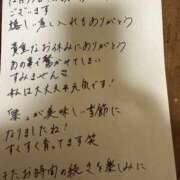 ございます
嬉しい差し入れもありがとう
貴重なお休みにありがとう
あの事で驚かせてしまい
すみません
私は大丈夫元気です!
栗が美味しい季節に
なりましたね!
すくすく育ってます笑
またお時間の続きを楽しみに